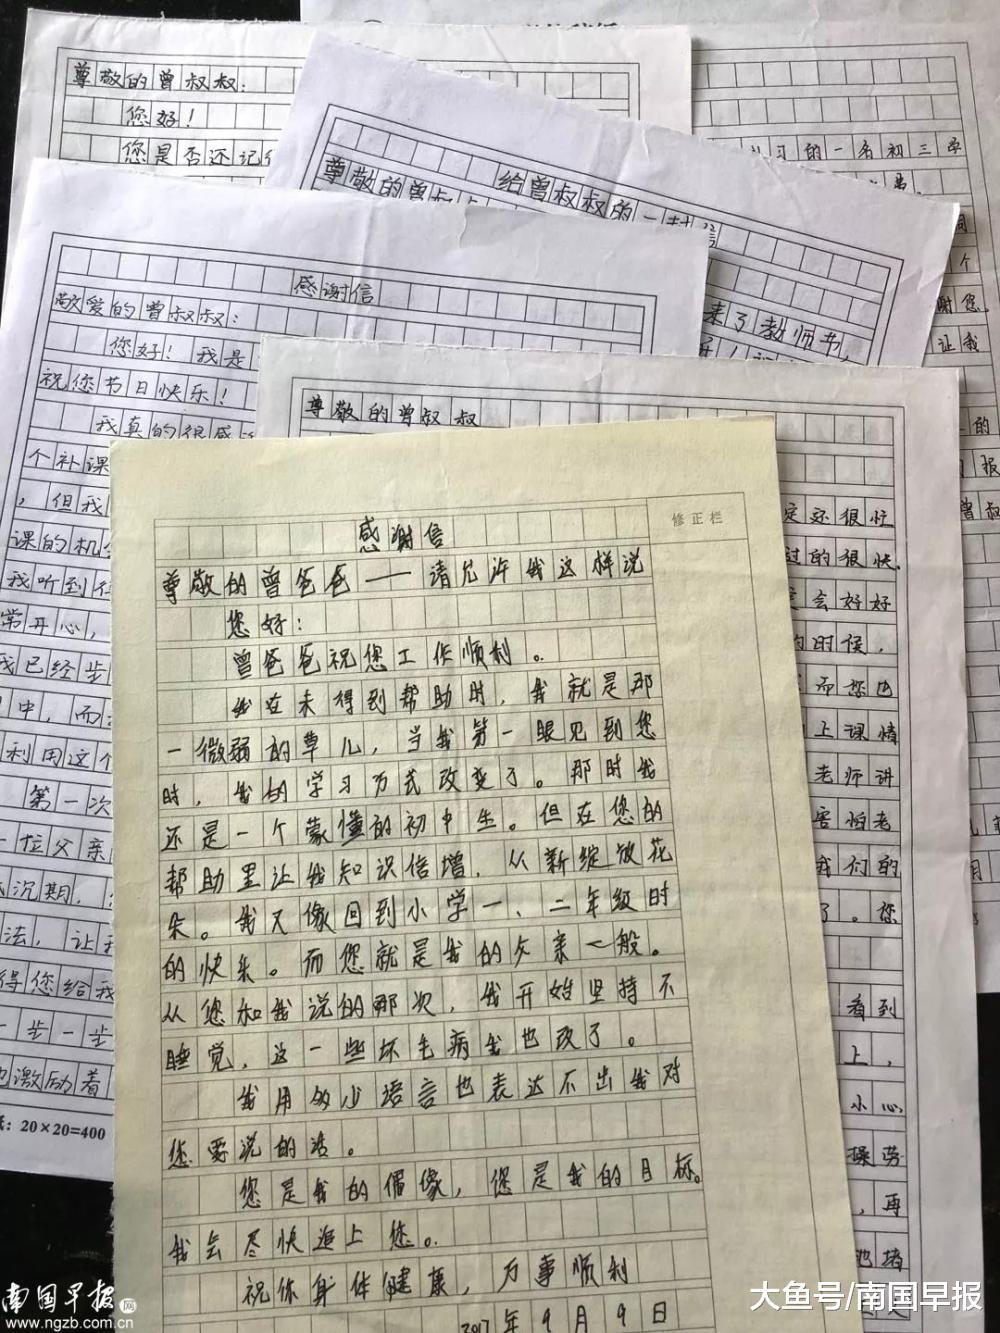 尊敬的曾叔叔：
您好！
您是否还记
习的一名初三学
给曾叔叔的一封信
尊敬的曾叔
来了教师节，
谢您.
让我
感谢信
敬爱的曾叔叔：
您好！我是
祝您节日快乐！
我真的很感
个补课
，但我
课的机
我听到
常开心，
我已经步
中，而
利用这个
第一次
一位父亲
沉期，
法，让我
得您给我
一步一步
激励着
20×20=400
尊敬的曾叔叔
定还很忙
过的很快.
会好好
的时候，
而您也
上课情
老师讲
害怕老
我们的
了。您
看到
上，
小心
操劳
，再
修正栏
感谢信
尊敬的曾爸爸——请允许我这样说
您好：
曾爸爸祝您工作顺利。
我在未得到帮助时，我就是那
一微弱的草儿，当我第一眼见到您
时，我的学习方式改变了。那时我
还是一个蒙懂的初中生。但在您的
帮助里让我知识倍增，从新绽放花
朵。我又像回到小学一、二年级时
的快乐。而您就是我的父亲一般。
从您和我说的那次，我开始坚持不
睡觉，这一些坏毛病我也改了。
我用多少语言也表达不出我对
您要说的话。
您是我的偶像，您是我的目标。
我会尽快追上您。
祝你身体健康，万事顺利
2017年9月9日
南国早报网
www.ngzb.com.cn
大鱼号/南国早报